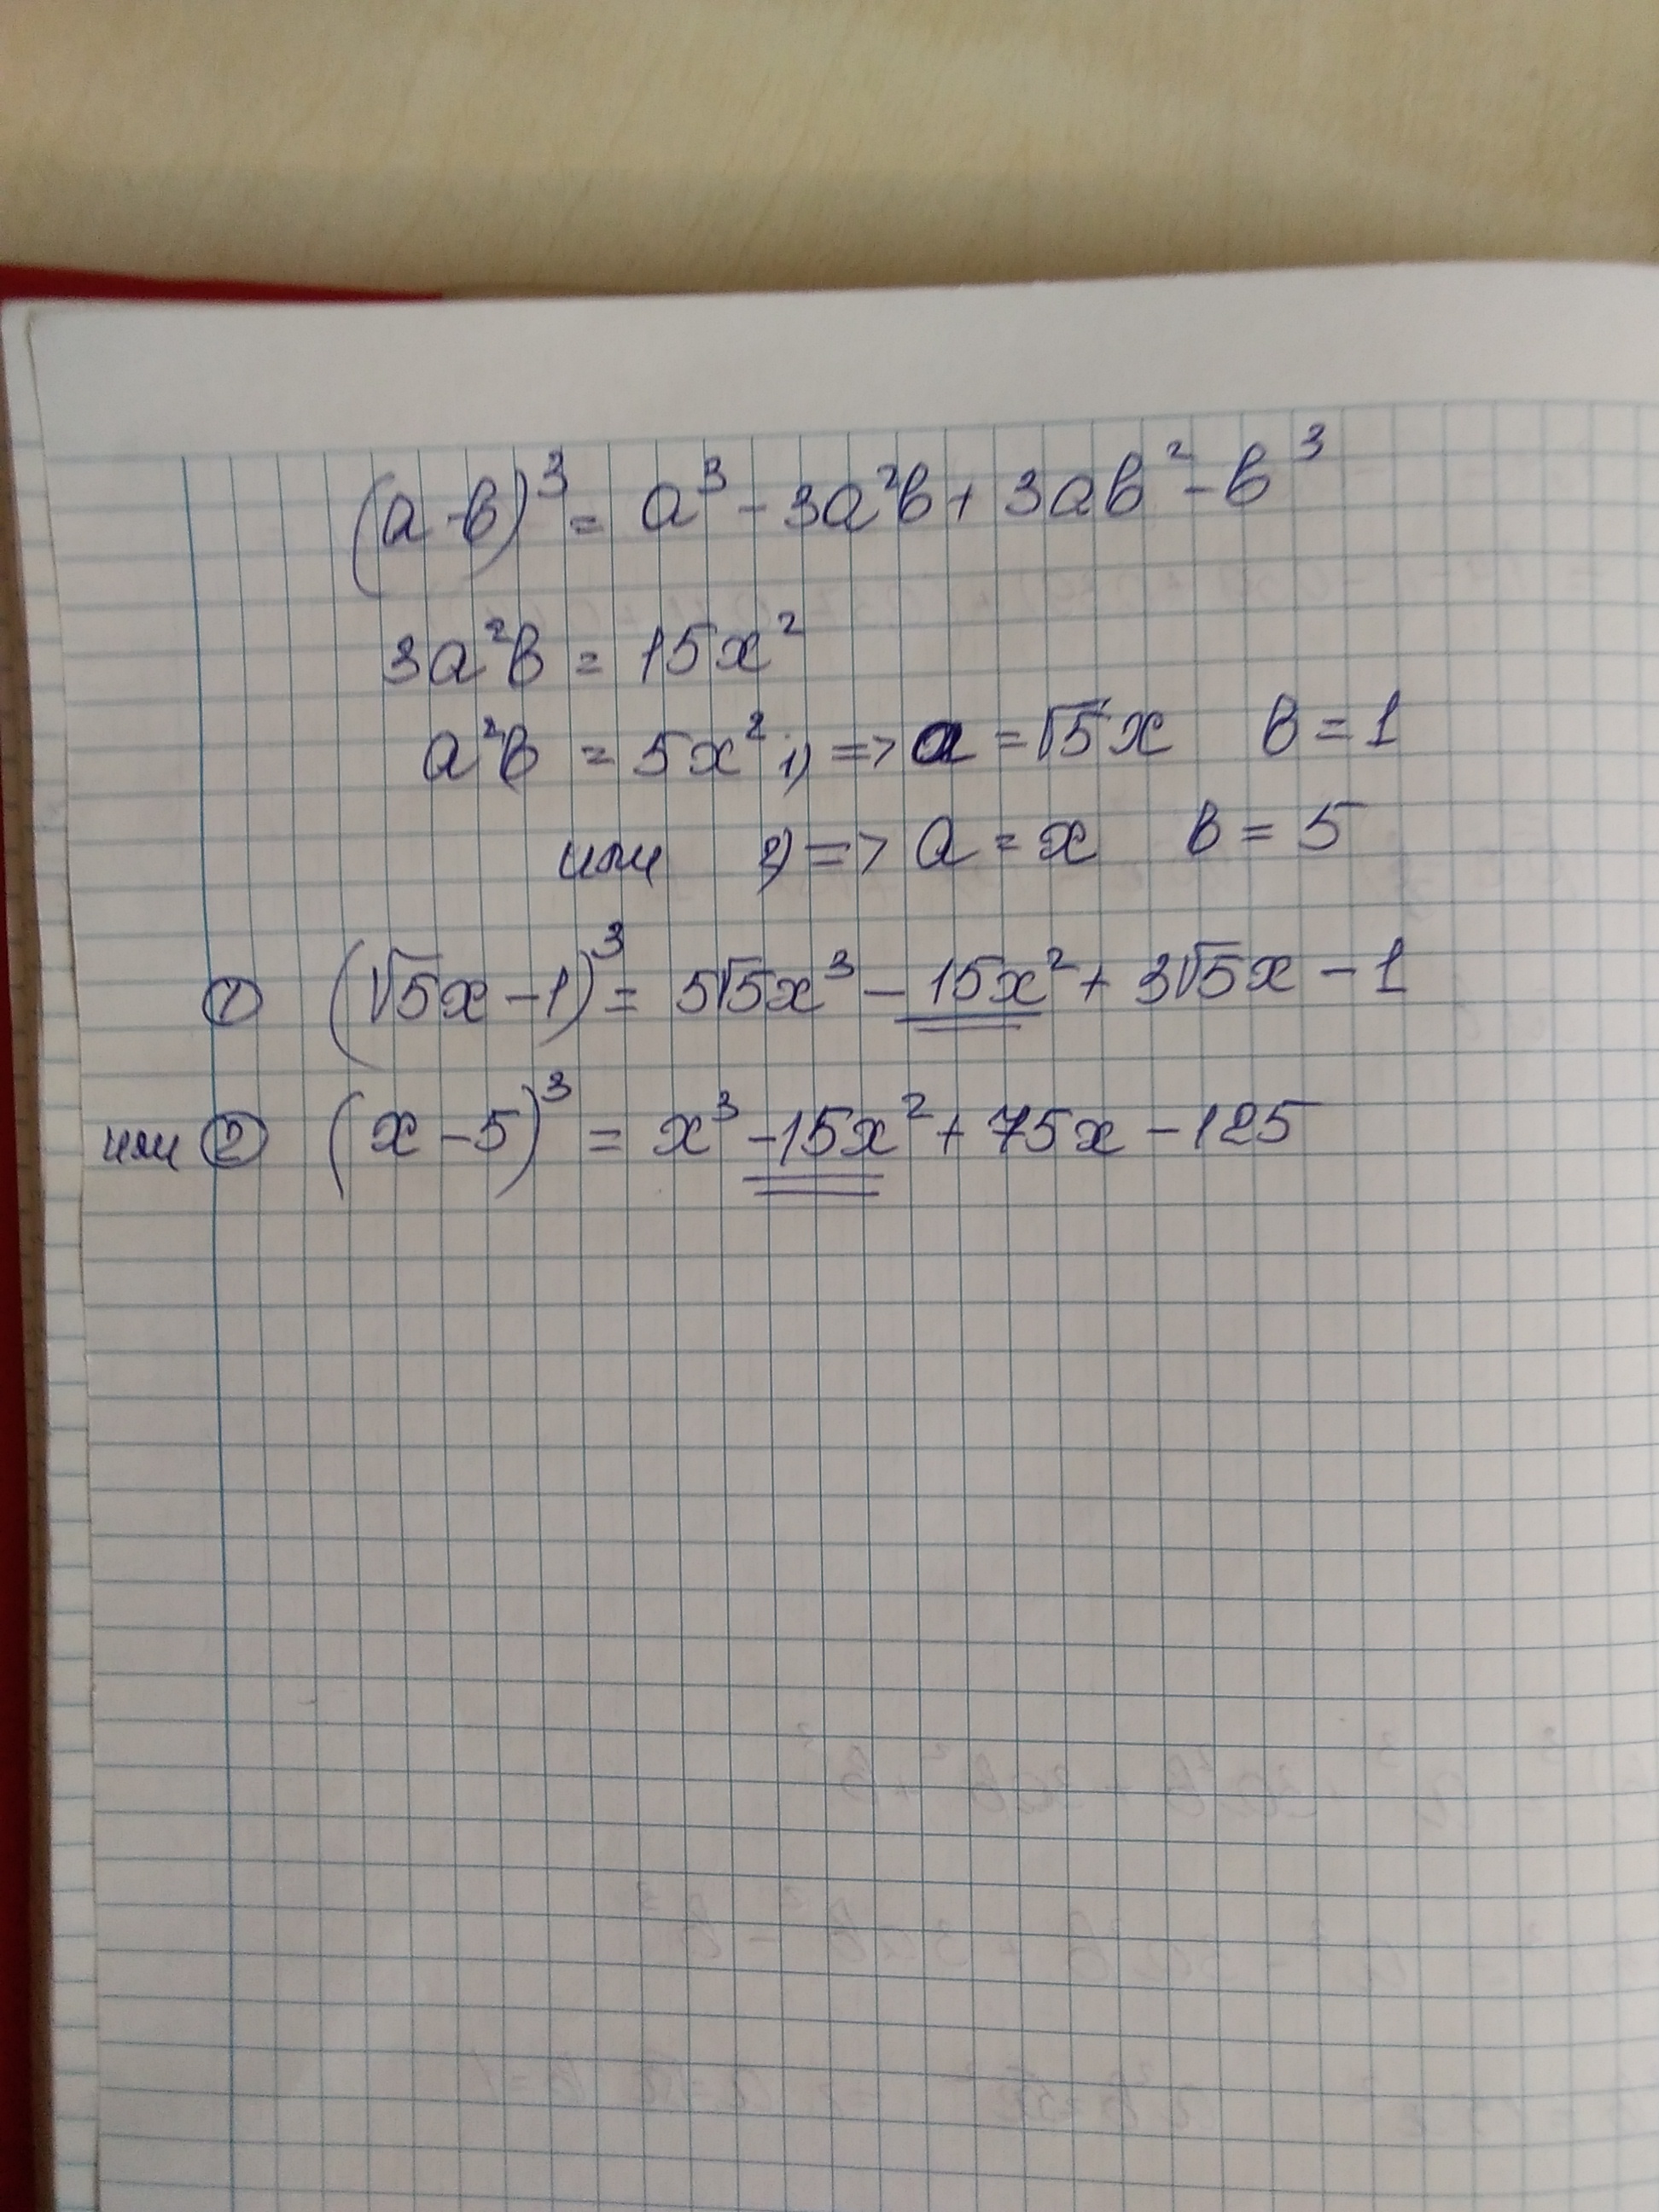 (a-b)³ = a³ - 3a²b + 3ab² - b³
3a²b = 15x²
a²b = 5x² 1) => a = √5x b = 1
или 2) => a = x b = 5
① (√5x - 1)³ = 5√5x³ - 15x² + 3√5x - 1
или ② (x - 5)³ = x³ - 15x² + 75x - 125